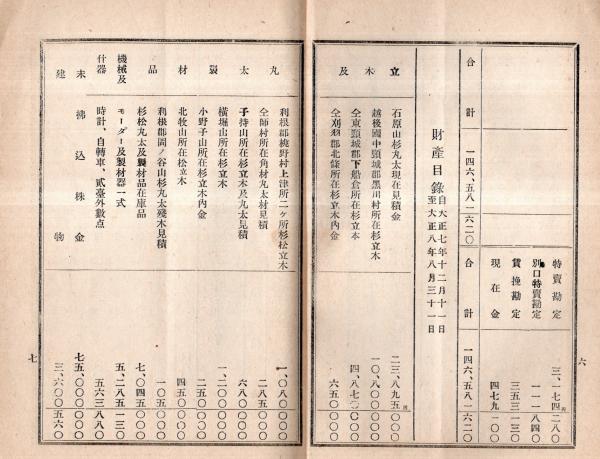 特賣勘定 三、一七四二八〇
別口特賣勘定 一一一八四〇
賃挽勘定 三五三一三〇
現在金 四七九一〇〇
合計 一四六、五八一六二〇
合計 一四六、五八一六二〇
六
財產目錄 自大正七年十二月十一日 至大正八年八月三十一日
立木及
石原山杉丸太現在見積金 二三、八九五〇〇〇
越後國中頸城郡黑川村所在杉立木 一〇、八〇〇〇〇〇
仝東頸城郡下船倉所在杉立木 四、八七〇〇〇〇
仝刈羽郡北條所在杉立木內金 六五〇〇〇〇
丸太製材品
利根郡桃野村上津所二ヶ所杉松立木 一、〇八〇〇〇〇
仝師村所在角材丸太材見積 二八五〇〇〇
子持山所在杉立木及丸太見積 六八〇〇〇〇
橫堀山所在杉立木 一、二〇〇〇〇〇
小野子山所在杉立木內金 二五〇〇〇〇
北牧山所在松立木 四五〇〇〇〇
利根郡岡ノ谷山杉丸太殘木見積 一〇五〇〇〇
杉松丸太及製材品在庫品 七、〇四五〇〇〇
機械及 モーター及製材器一式 五、二八五一三〇
什器 時計、自轉車、貳臺外數点 五六三八八〇
未拂込株金 七五、〇〇〇〇〇〇
建物 三、六〇〇五六〇
七